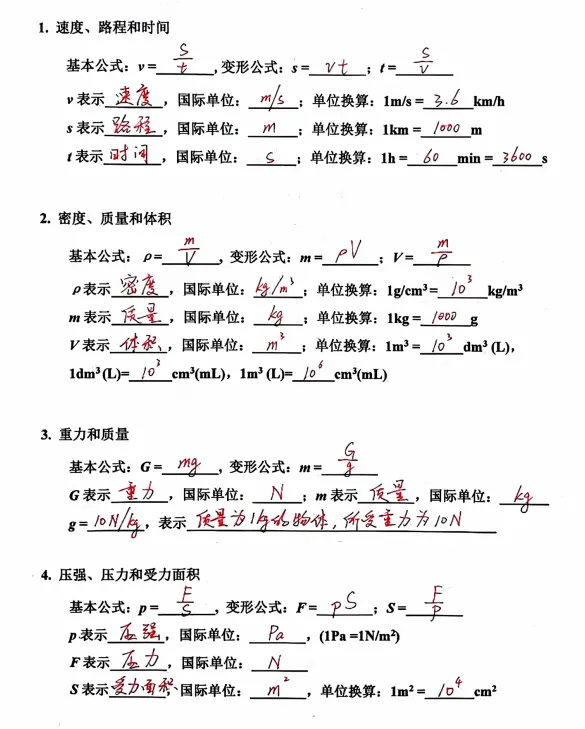 1. 速度、路程和时间
基本公式：v = s/t ，变形公式：s = vt ；t = s/v
v 表示 速度 ，国际单位： m/s ；单位换算：1m/s = 3.6 km/h
s 表示 路程 ，国际单位： m ；单位换算：1km = 1000 m
t 表示 时间 ，国际单位： s ；单位换算：1h = 60 min = 3600 s
2. 密度、质量和体积
基本公式：ρ= m/V ，变形公式：m = ρV ；V = m/ρ
ρ表示 密度 ，国际单位： kg/m³ ；单位换算：1g/cm³ = 10³ kg/m³
m 表示 质量 ，国际单位： kg ；单位换算：1kg = 1000 g
V 表示 体积 ，国际单位： m³ ；单位换算：1m³ = 10³ dm³ (L)，
1dm³ (L)= 10³ cm³(mL)，1m³ (L)= 10⁶ cm³(mL)
3. 重力和质量
基本公式：G = mg ，变形公式：m = G/g
G 表示 重力 ，国际单位： N ；m 表示 质量 ，国际单位： kg
g = 10N/kg ，表示 质量为1kg的物体，所受重力为10N
4. 压强、压力和受力面积
基本公式：p = F/S ，变形公式：F = pS ；S = F/p
p 表示 压强 ，国际单位： Pa ，(1Pa =1N/m²)
F 表示 压力 ，国际单位： N
S 表示 受力面积 ，国际单位： m² ，单位换算：1m² = 10⁴ cm²